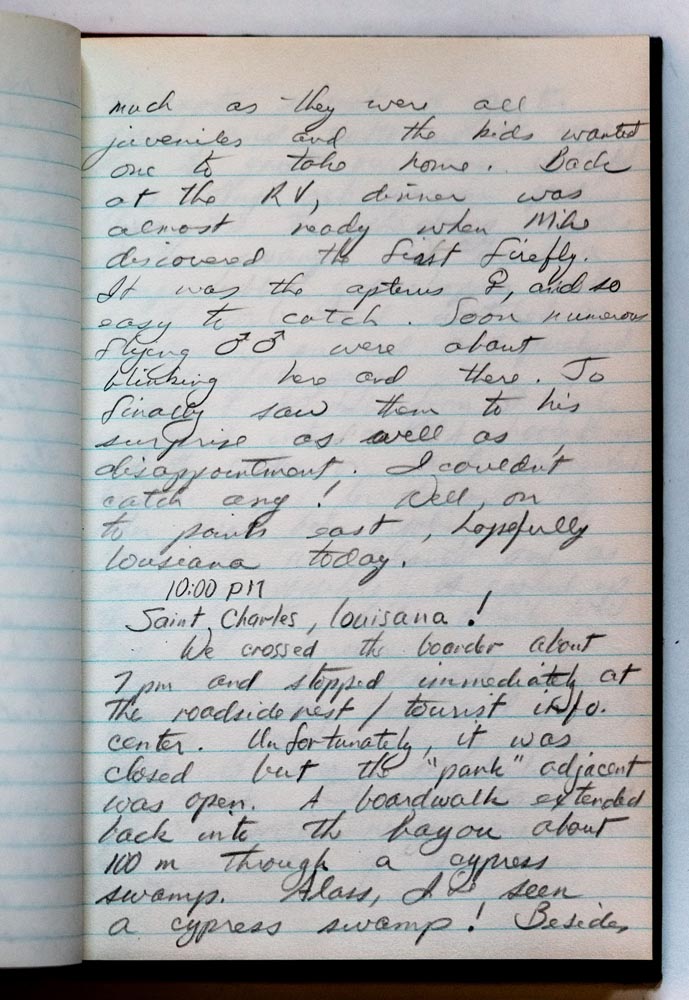 much as they were all
juveniles and the kids wanted
one to take home. Back
at the RV, dinner was
almost ready when Mike
discovered the first firefly.
It was the apterus ♀, and so
easy to catch. Soon numerous
flying ♂♂ were about
blinking here and there. Jo
finally saw them to his
surprise as well as
disappointment. I couldn't
catch any! Well, on
to points east, hopefully
Lousiana today.
10:00 PM
Saint Charles, Louisana!
We crossed the boarder about
7 pm and stopped immediately at
the roadside rest / tourist info.
center. Unfortunately, it was
closed but the "park" adjacent
was open. A boardwalk extended
back into the bayou about
100 m through a cypress
swamp. Alass, I seen
a cypress swamp! Besides,